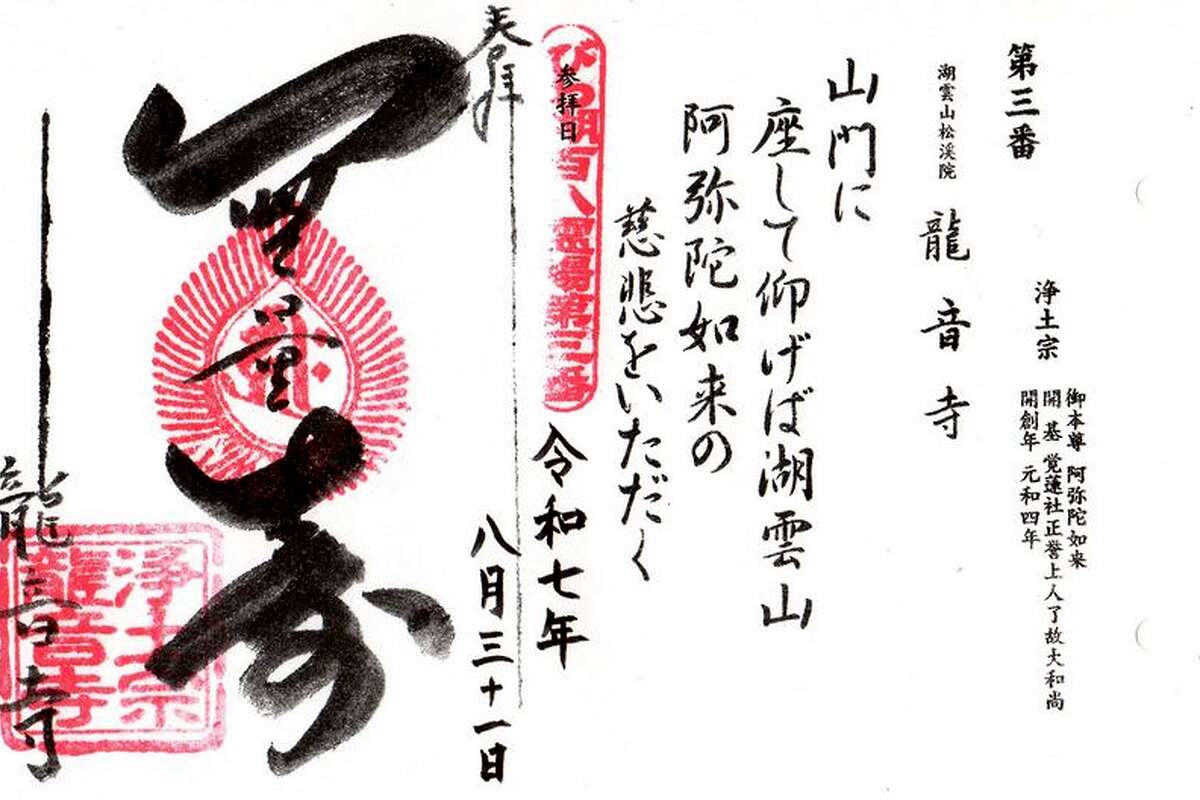 第三番
浄土宗
御本尊 阿弥陀如来
開基 覚蓮社正誉上人了故大和尚
開創年 元和四年
湖雲山松渓院 龍音寺
山門に
座して仰げば湖雲山
阿弥陀如来の
慈悲をいただく
びわ湖百八霊場第三番
参拝日
令和七年
八月三十一日
奉拝
無量寿
龍音寺
浄土宗
龍音寺